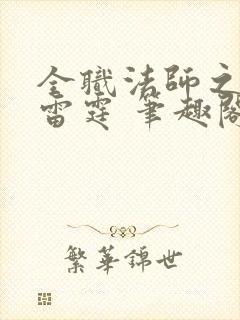 全職法師之
雷霆 筆趣閣
繁華錦世